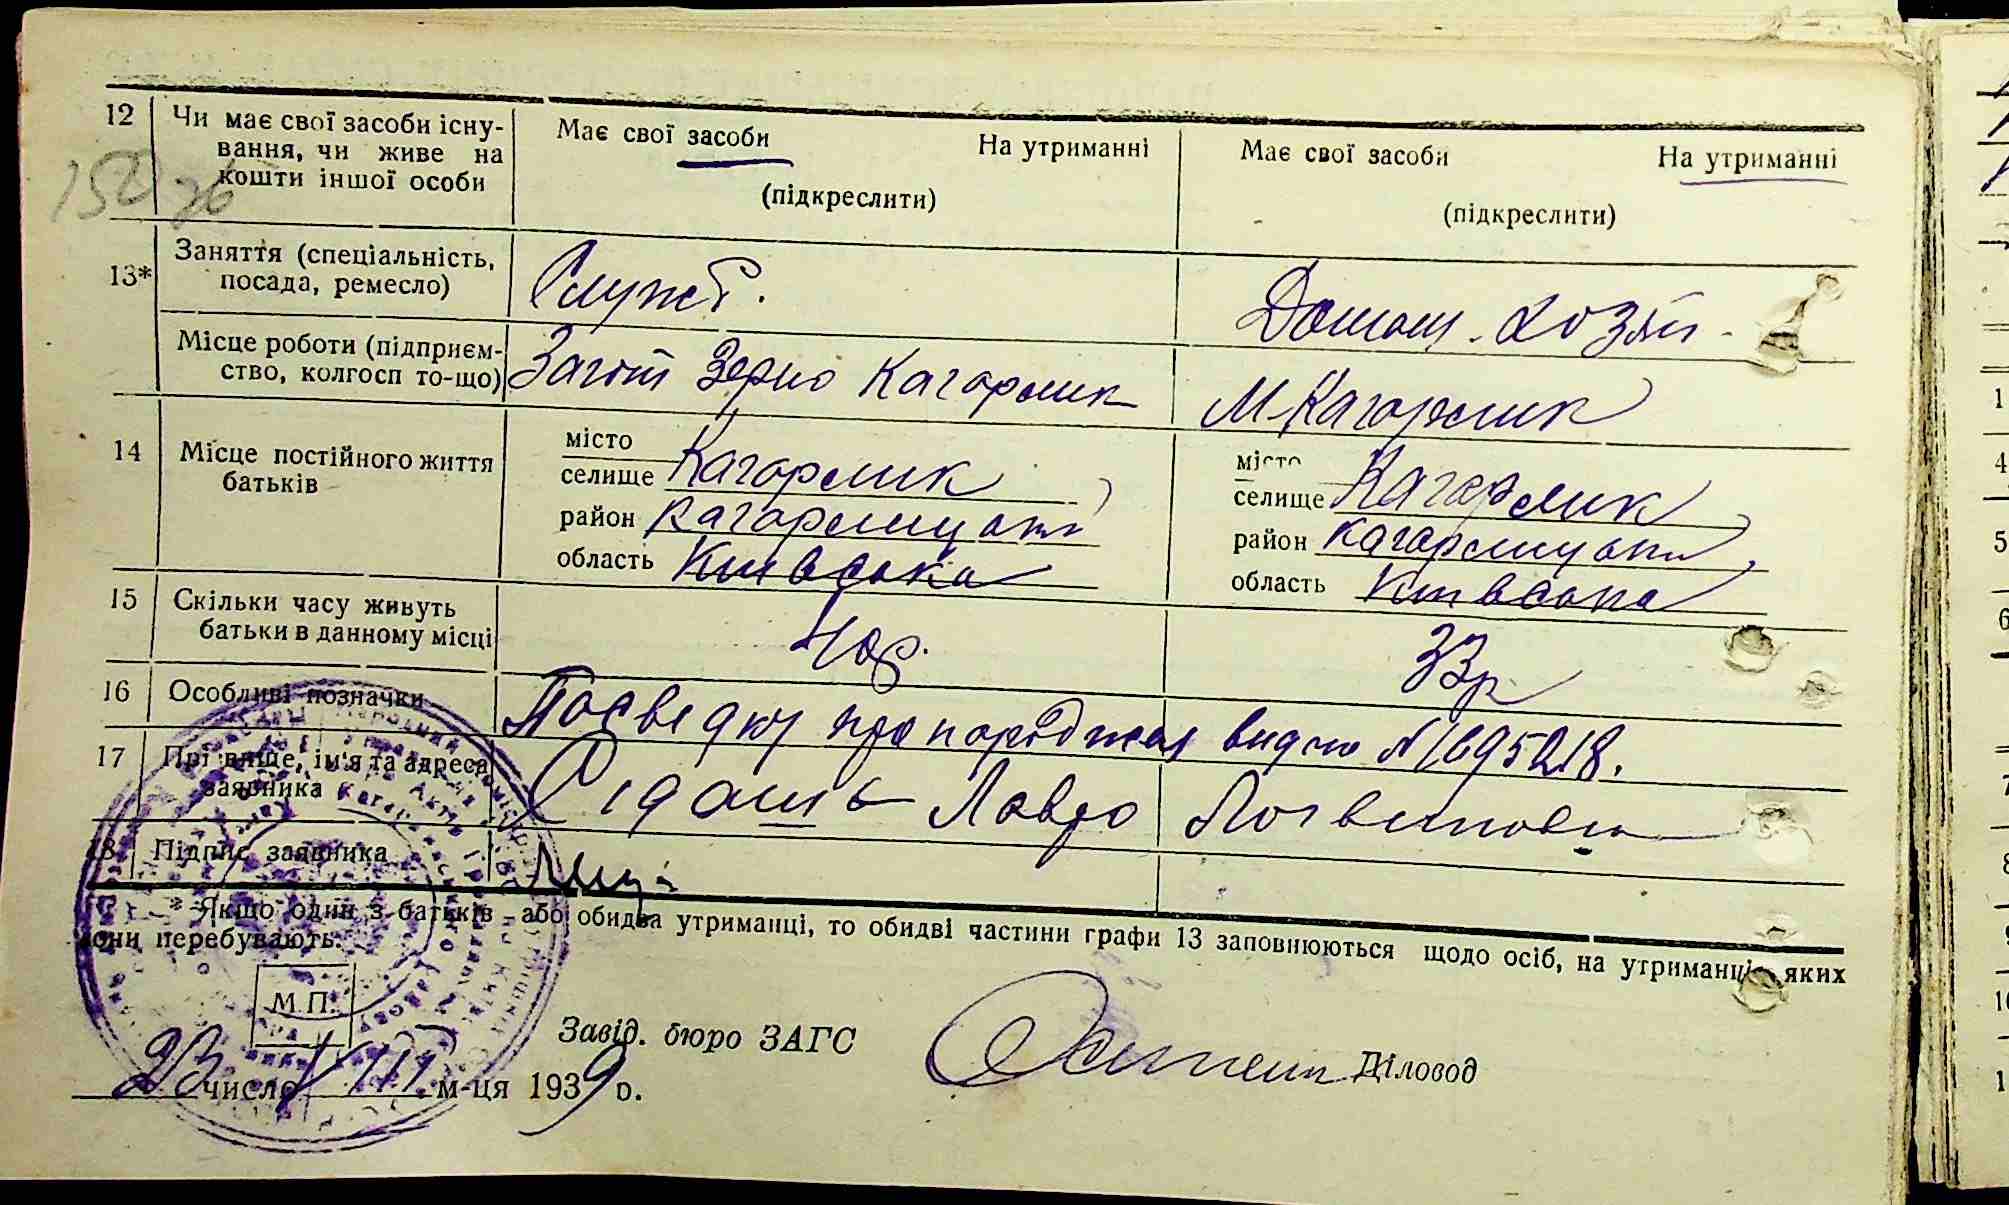 12 Чи має свої засоби існу-
вання, чи живе на
кошти іншої особи
Має свої засоби На утриманні
(підкреслити)
Має свої засоби На утриманні
(підкреслити)
150 зв
13* Заняття (спеціальність,
посада, ремесло)
Служб.
Домаш. хозяй
Місце роботи (підприєм-
ство, колгосп то-що)
Загот Зерно Кагарлик
М Кагарлик
14 Місце постійного життя
батьків
місто
селище Кагарлик
район Кагарлицький
область Київська
місто
селище Кагарлик
район Кагарлицький
область Київська
15 Скільки часу живуть
батьки в данному місці
33р
16 Особливі позначки
Посведку про народження видано № 1695218.
17 Прізвище, ім'я та адреса
заявника
Лавро Логвинович
18 Підпис заявника
* Якщо один з батьків або обидва утриманці, то обидві частини графи 13 заповнюються щодо осіб, на утриманні яких
вони перебувають.
М.П.
Завід. бюро ЗАГС
Діловод
23 число VIII м-ця 1939 р.
1
4
5
6
7
8
9
10
1